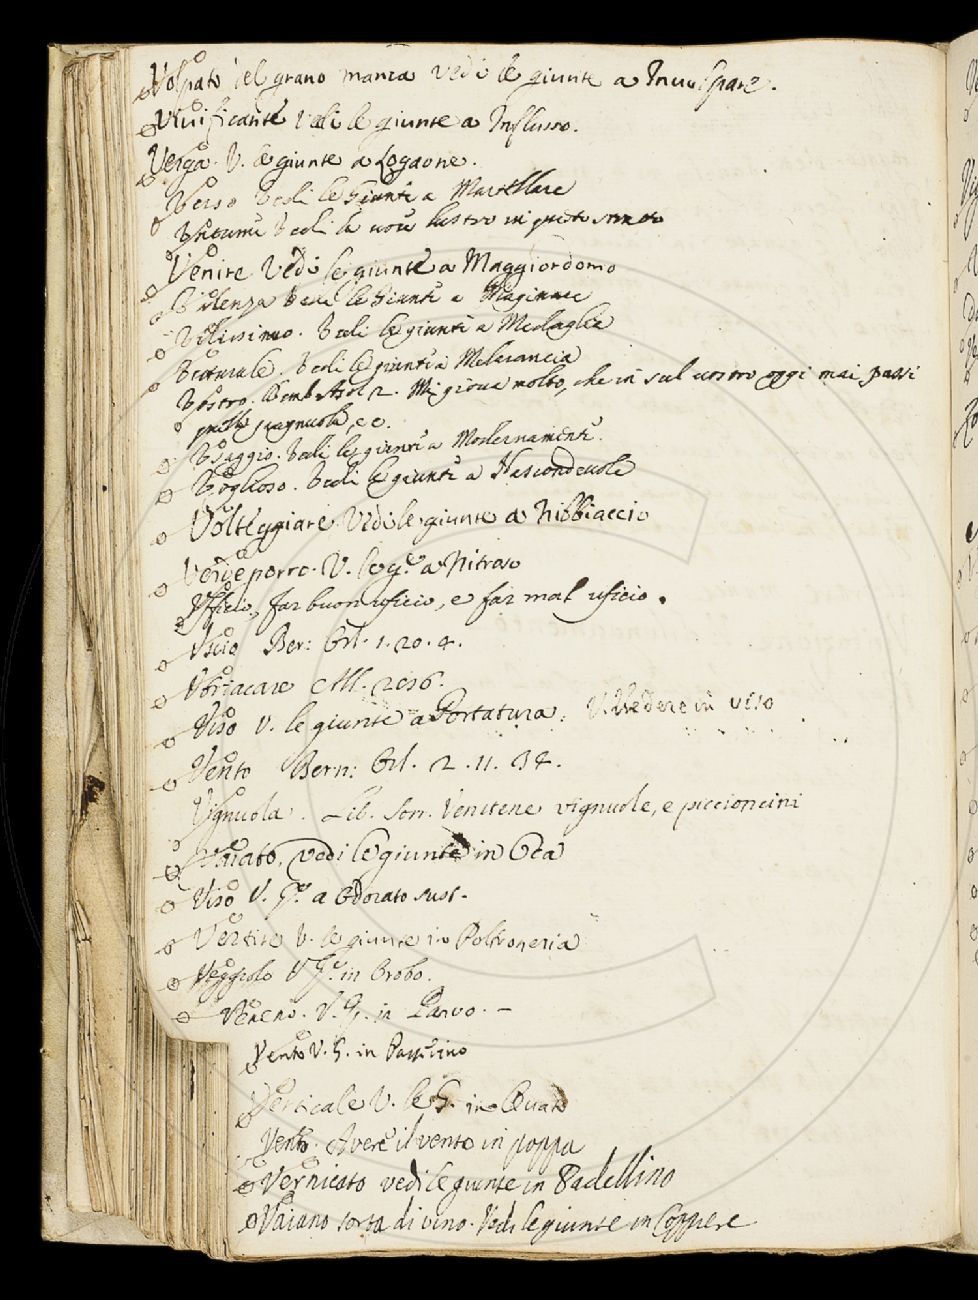 Volpato del grano manca vedi le giunte a Invol​pare.
Vivificante Vedi le giunte a Influsso.
Verga. V. le giunte a Logaone.
Verso Vedi le Giunte a Martellare
Vedi la voce lustro in questo
Venire Vedi le giunte a Maggiordomo
Vedi le Giunte a Maginare
Vilissimo. Vedi le giunte a Medaglia
Vedi le giunte a Melarancia
Vostro. Bemb. Asol. 2. Mi giova molto, che in sul vostro oggi mai passi
questo
Viaggio. Vedi le giunte a Modernamente.
Voglioso. Vedi le giunte a Nascondevole
Volteggiare. Vedi le giunte a Nibbiaccio
Verdeporro. V. le g.e a Nitroso
Ufficio, far buon uficio, e far mal uficio.
Uscio Ber: Orl. 1. 20. 4.
Ubriacare All. 2636.
Viso V. le giunte a Portatura. V. Vedere in viso
Vento Bern: Orl. 2. 11. 34.
Vignuola. Lib. Son. Venitene vignuole, e piccioncini
Vaiato, vedi le giunte in Oca
Viso V. G.e a Odorato sust.
Vertire V. le giunte in Poltroneria
Veggiolo V. G.e in Orobo.
Veneno. V. G. in Parvo. –
Vento V. G. in
Verticale V. le G. in Ovato
Vento. Avere il vento in poppa
Vernicato vedi le giunte in Padellino
Vaiano sorta di vino. Vedi le giunte in Coppiere